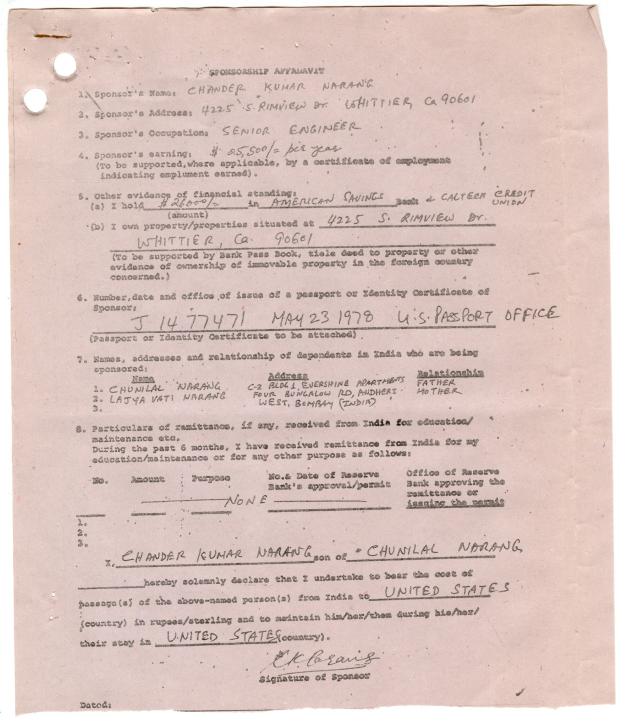 SPONSORSHIP AFFADAVIT
1. Sponsor's Name: CHANDER KUMAR NARANG
2. Sponsor's Address: 4225 S. RIMVIEW Dr. WHITTIER, Ca 90601
3. Sponsor's Occupation: SENIOR ENGINEER
4. Sponsor's earning: $ 25,500/= per year
(To be supported, where applicable, by a certificate of employment
indicating emplument earned).
5. Other evidence of financial standing:
(a) I hold $26000/= in AMERICAN SAVINGS Bank & CALTECH CREDIT UNION
(amount)
(b) I own property/properties situated at 4225 S. RIMVIEW Dr.
WHITTIER, Ca. 90601
(To be supported by Bank Pass Book, tiele deed to property or other
evidence of ownership of immovable property in the foreign country
concerned.)
6. Number, date and office of issue of a passport or Identity Certificate of
Sponsor:
J 1477471 MAY 23 1978 U.S. PASSPORT OFFICE
(Passport or Identity Certificate to be attached)
7. Names, addresses and relationship of dependents in India who are being
sponsored:
Name Address Relationship
1. CHUNILAL NARANG C-2 BLDG 1, EVERSHINE APARTMENTS FATHER
2. LAJYA VATI NARANG FOUR BUNGALOW RD, ANDHERI MOTHER
3. WEST, BOMBAY (INDIA)
8. Particulars of remittance, if any, received from India for education/
maintenance etc.
During the past 6 months, I have received remittance from India for my
education/maintenance or for any other purpose as follows:
No. Amount Purpose No.& Date of Reserve Bank's approval/permit Office of Reserve Bank approving the remittance or issuing the permit
NONE
1.
2.
3.
I. CHANDER KUMAR NARANG son of CHUNILAL NARANG
hereby solemnly declare that I undertake to bear the cost of
passage(s) of the above-named person(s) from India to UNITED STATES
(country) in rupees/sterling and to maintain him/her/them during his/her/
their stay in UNITED STATES (country).
Signature of Sponsor
Dated: